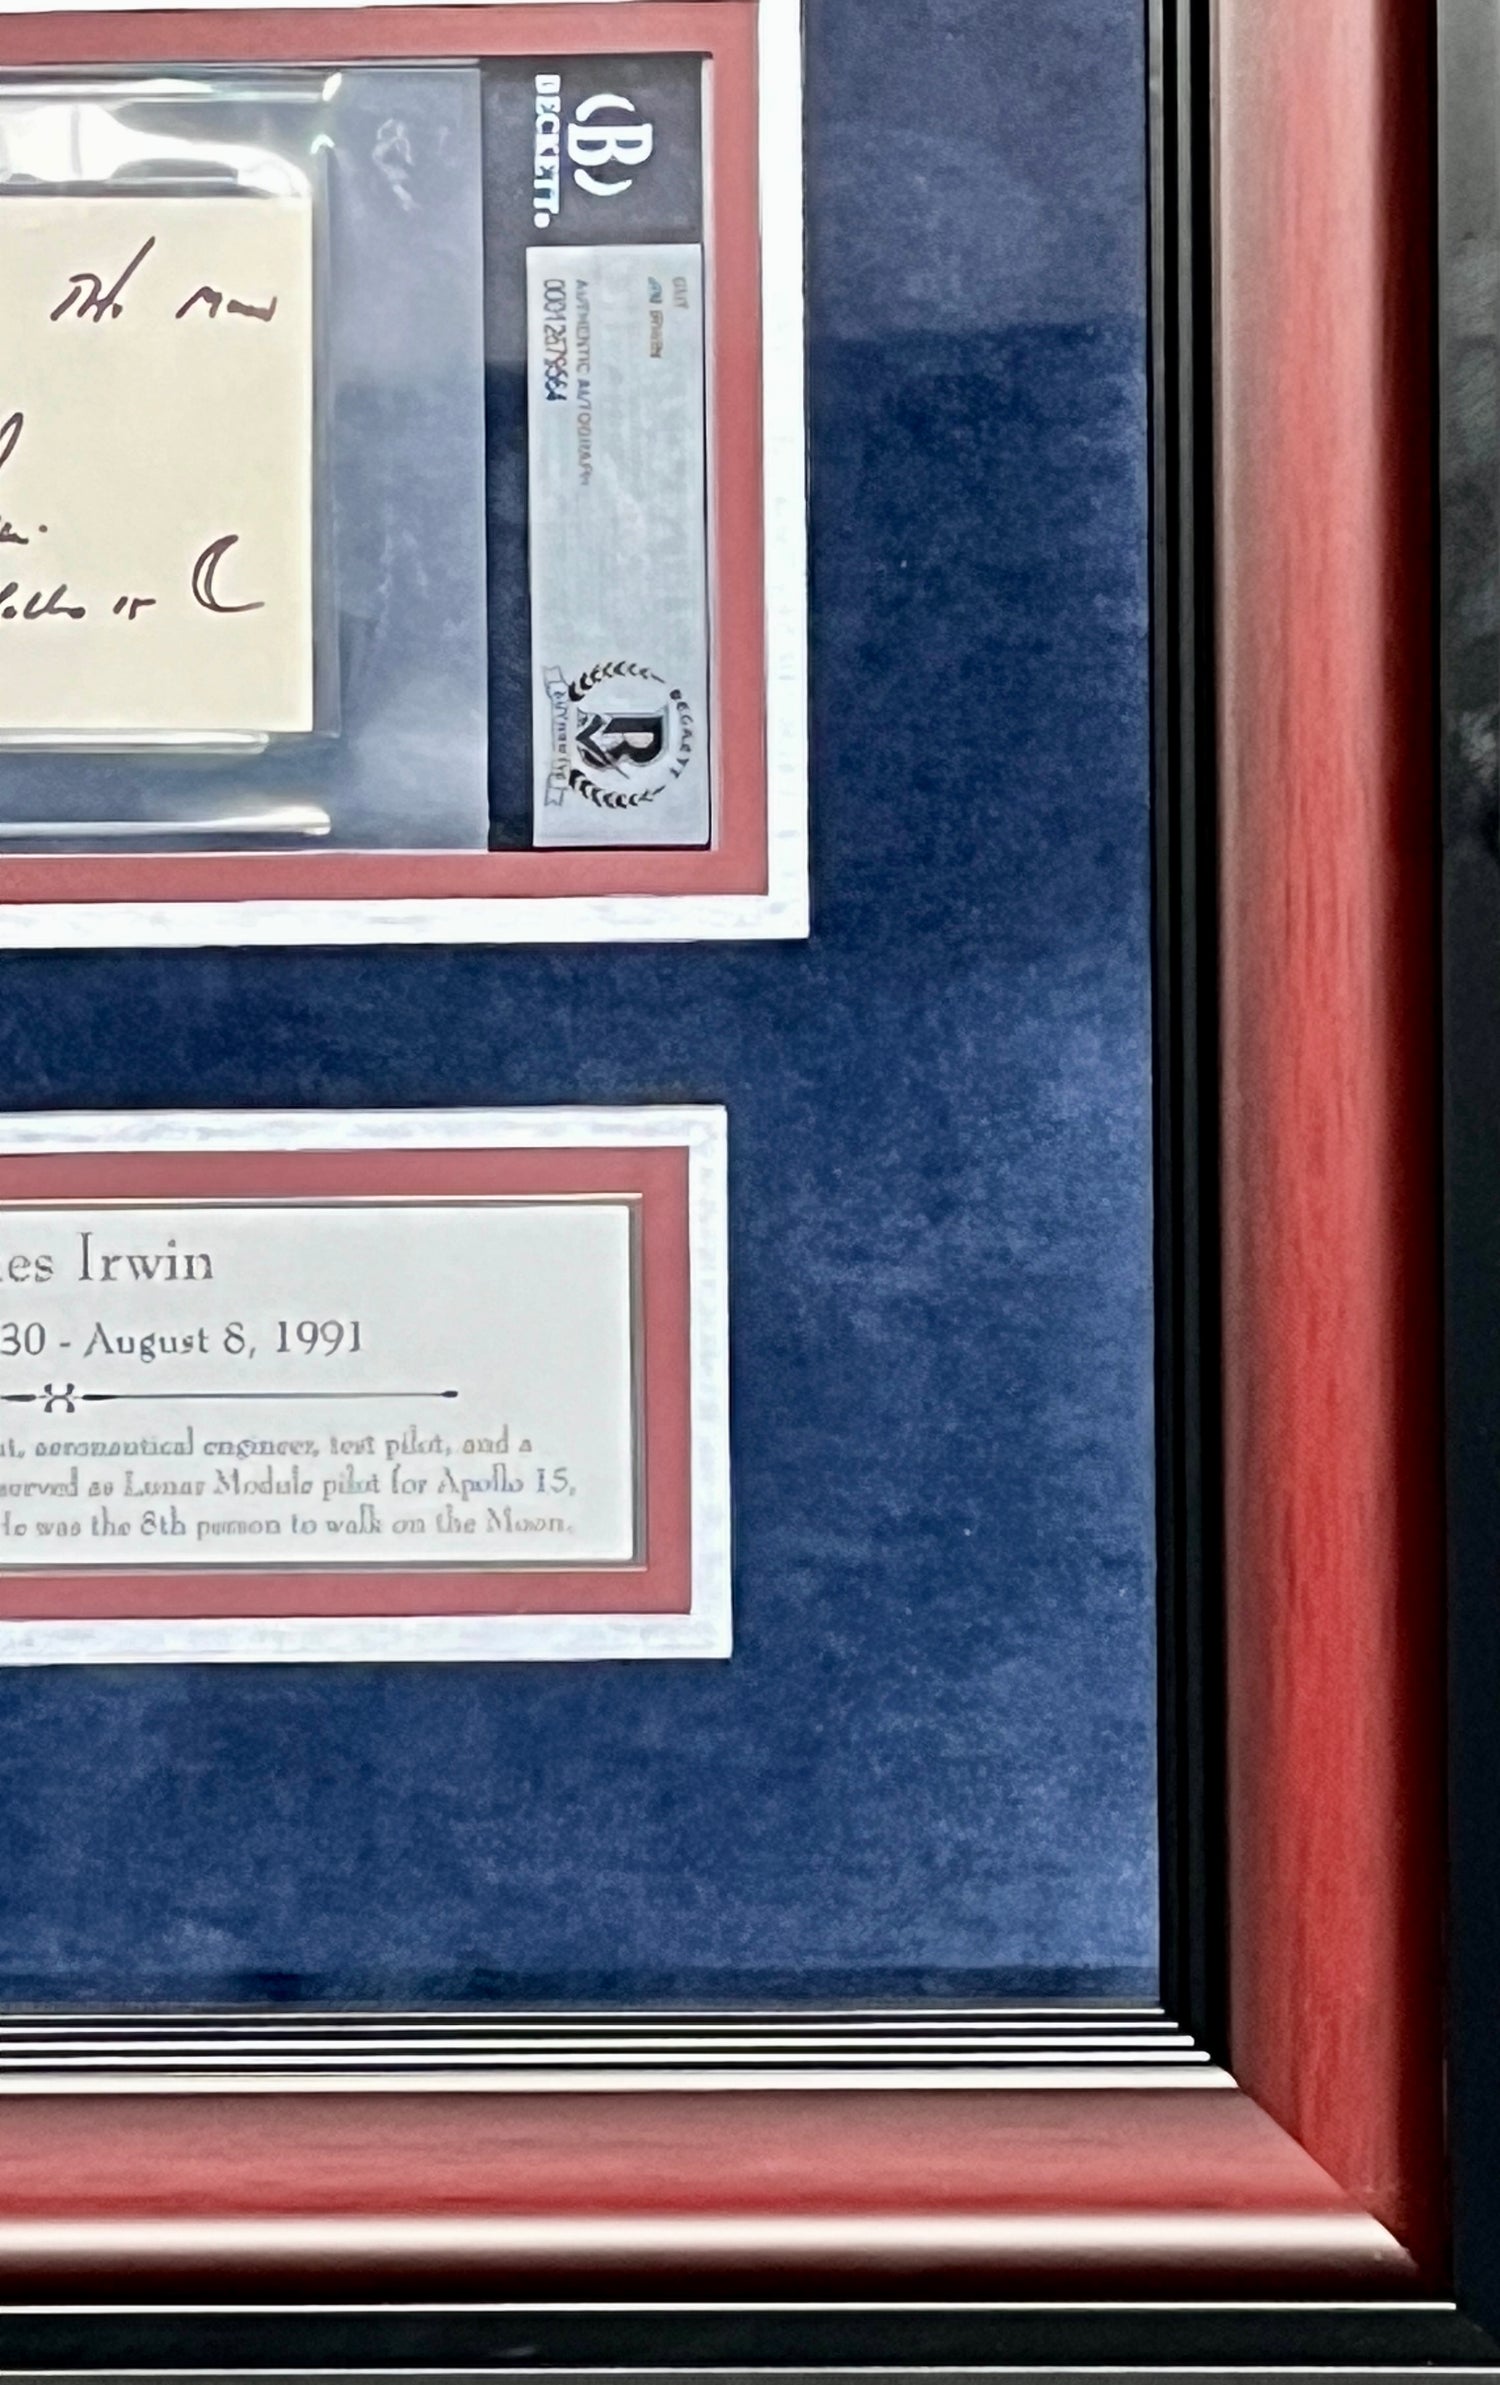 The Moon
15
BECKETT
CUT
AUTHENTIC AUTOGRAPH
BECKETT
es Irwin
30 - August 8, 1991
aeronautical engineer, test pilot, and a
served as Lunar Module pilot for Apollo 15,
He was the 8th person to walk on the Moon.